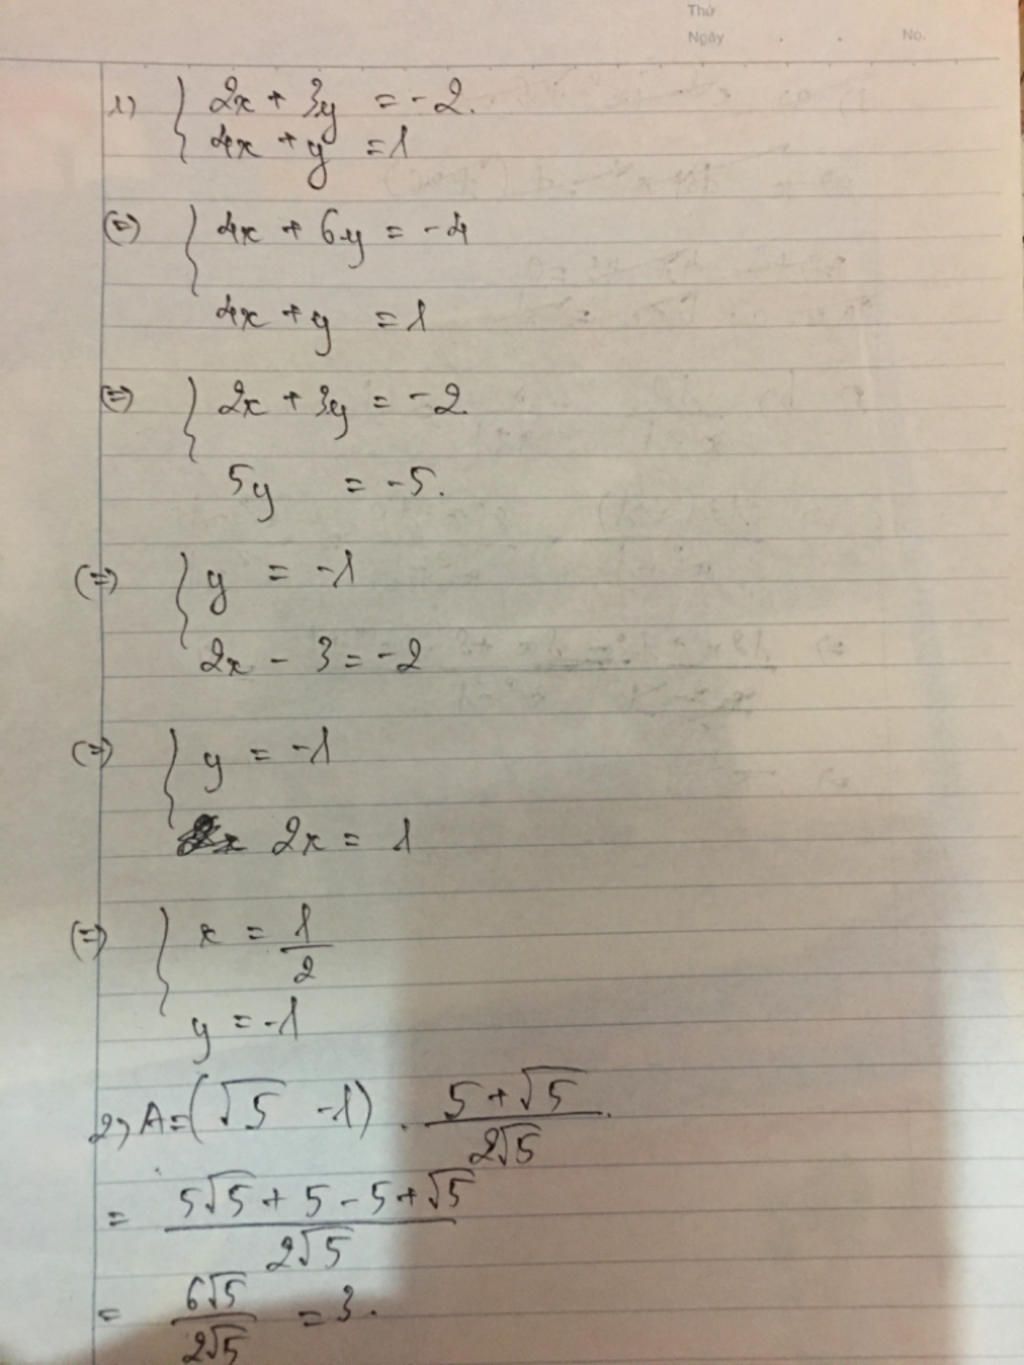 Thứ
Ngày . . No.
1) { 2x + 3y = -2.
4x + y = 1
(=) { 4x + 6y = -4
4x + y = 1
(=) { 2x + 3y = -2
5y = -5.
(=) { y = -1
2x - 3 = -2
(=) { y = -1
2x = 1
(=) { x = 1/2
y = -1
2, A = (√5 - 1) . (5 + √5)/(2√5)
= (5√5 + 5 - 5 + √5)/(2√5)
= 6√5/2√5 = 3.